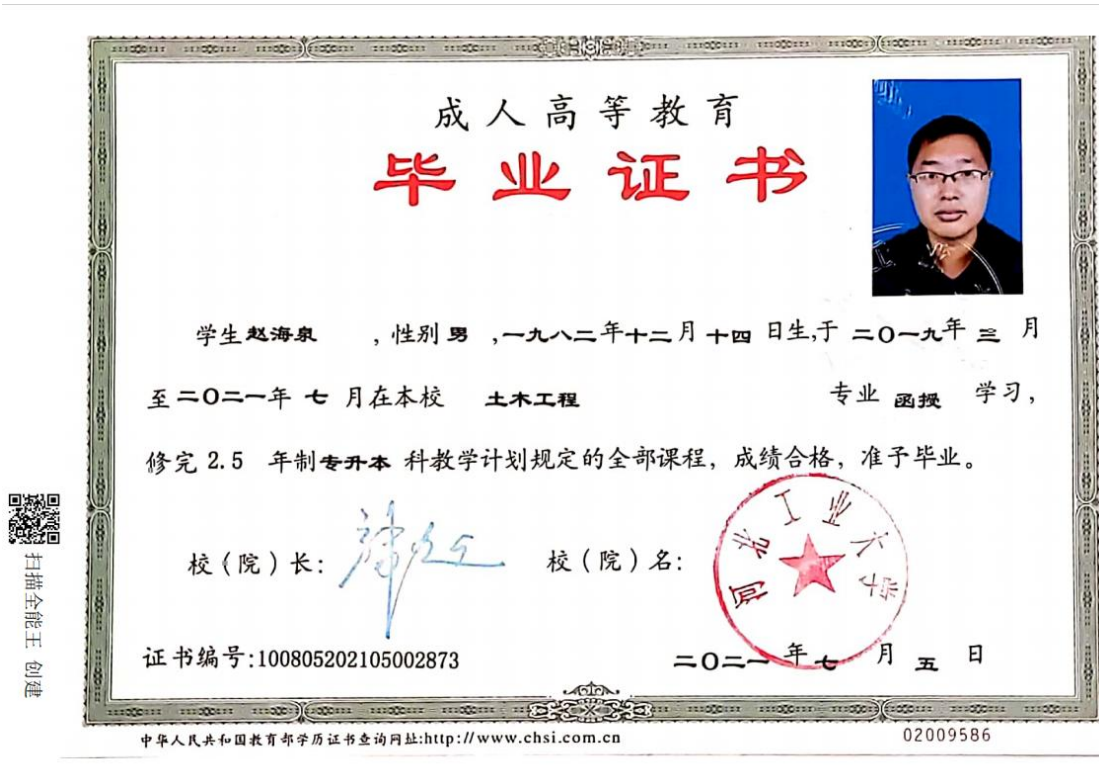 成人高等教育
毕业证书
学生 赵海泉 ，性别 男 ，一九八二年十二月十四日生,于 二〇一九年 三 月
至二〇二一年 七 月在本校 土木工程 专业 函授 学习，
修完 2.5 年制专升本 科教学计划规定的全部课程，成绩合格，准予毕业。
校（院）长： 校（院）名：
河北工业大学
证书编号:100805202105002873 二〇二一年七月五日
中华人民共和国教育部学历证书查询网址:http://www.chsi.com.cn 02009586
扫描全能王 创建